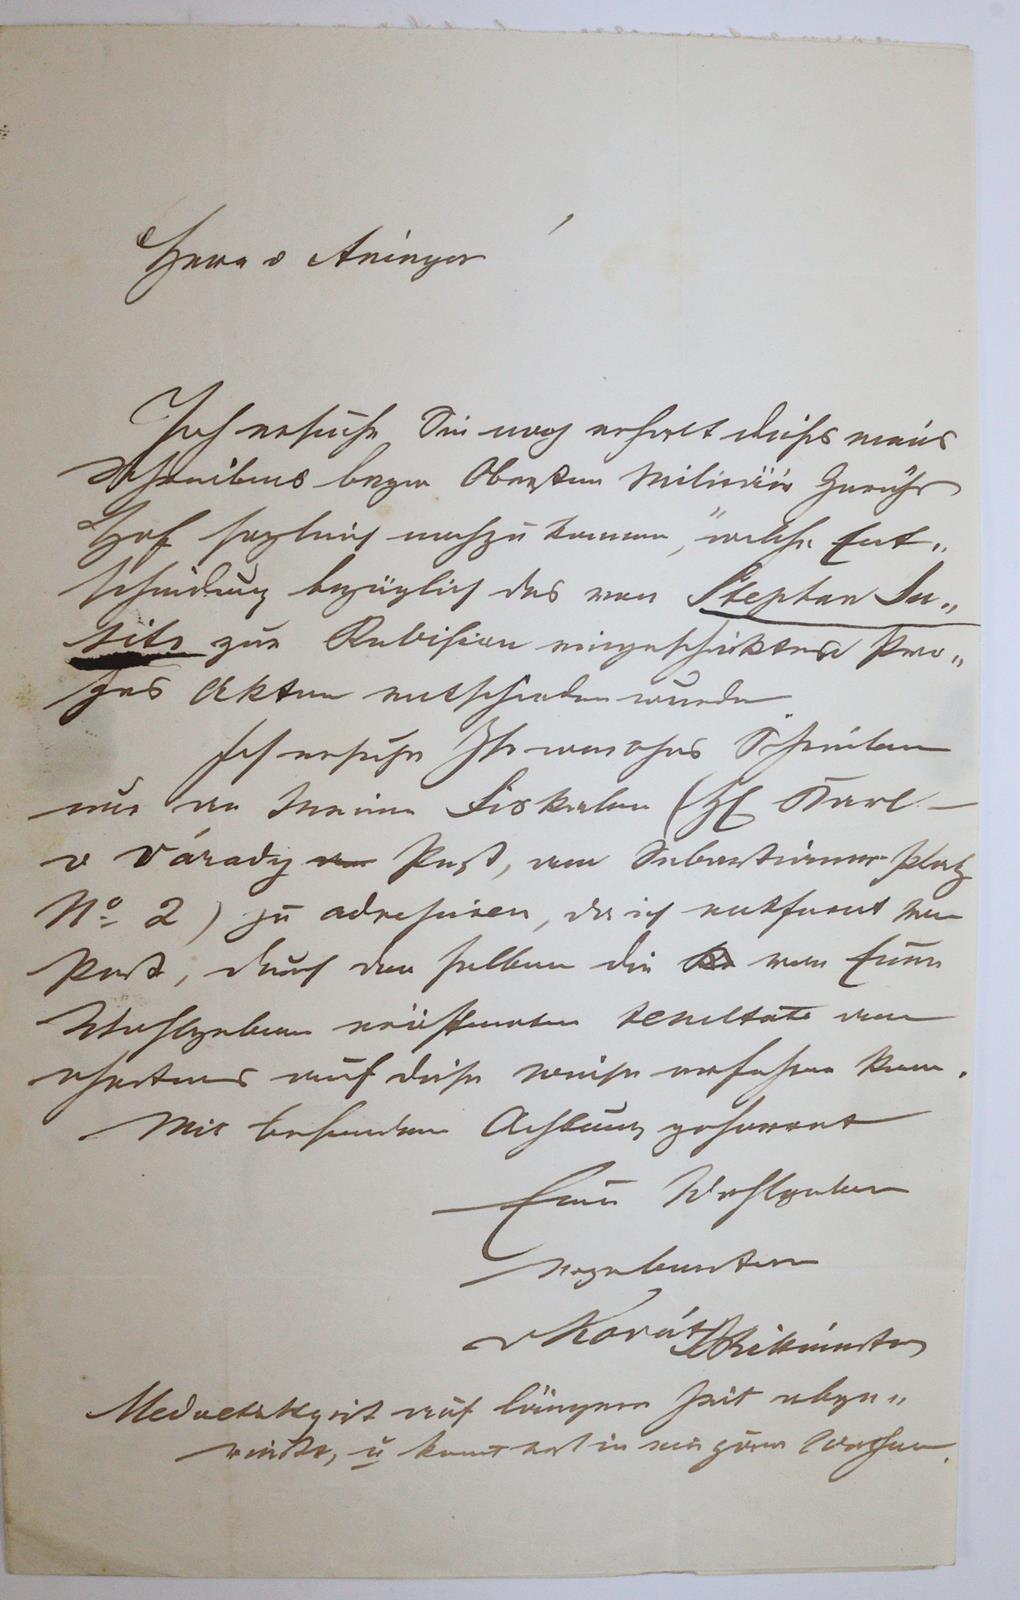 Herrn v Aninger
Ich ersuche Sie nach erhalt dieses meines
Schreibens beym Obersten Militär Gerichts
Hof sogleich nachzukommen, welche Ent„
scheidung bezüglich des von Stephan Su„
sits zur Revision eingeschickten Pro„
zes Akten entschieden wurde.
Ich ersuche Ihr Schreiben
nur an meinen Fiskalen (H Karl
v Várady Pest, am Sebastianer platz
No 2) zu adresiren, da ich entfernt von
Pest, durch den selben die von Euer
Wohlgeboren resultate am
auf diese weise erfahren kann.
Mit besonderer Achtung geharret
Euer Wohlgeboren
ergebenster
v Kovát Rittmeister
auf längere Zeit abge„
reist, u komt erst in ein paar Wochen.